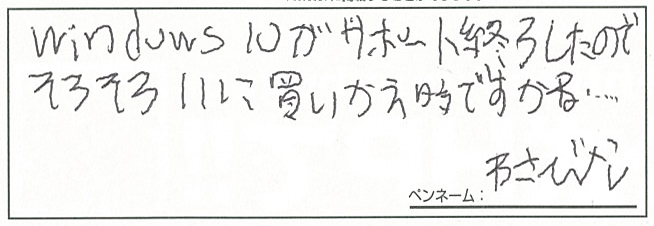 windows 10がサポート終了したので
そろそろ11に買いかえ時ですかね....
ペンネーム：わさびずし